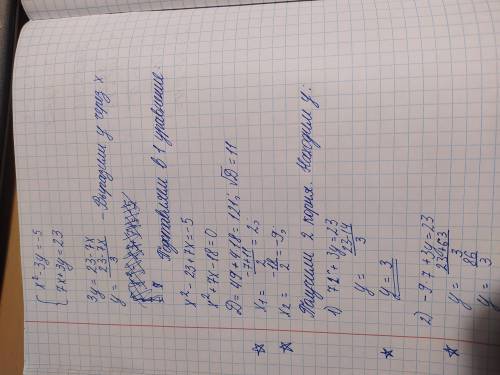 { x² - 3y = -5
7x + 3y = 23
3y = 23 - 7x
y = (23 - 7x)/3 - Выразили y через x
Подставляем в 1 уравнение:
x² - 23 + 7x = -5
x² + 7x - 18 = 0
D = 49 + 4·18 = 121; √D = 11
x₁ = (-7+11)/2 = 2,
x₂ = -18/2 = -9,
Получили 2 корня. Находим y:
1) 7·2 + 3y = 23
y = (23-14)/3
y = 3
2) -9·7 + 3y = 23
y = (23+63)/3
y = 86/3